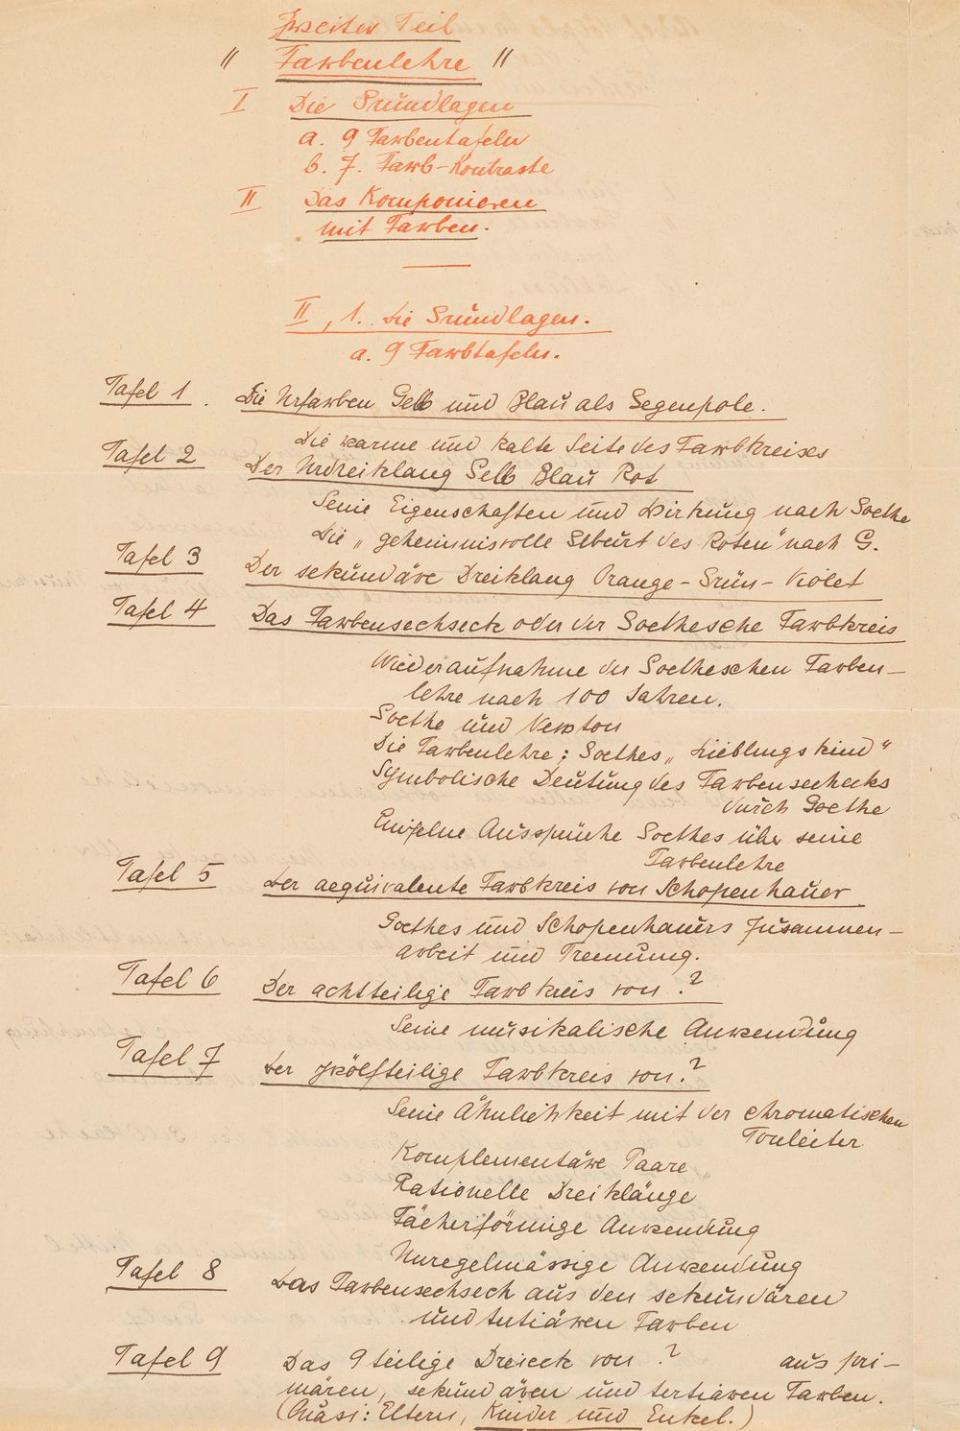 Zweiter Teil
" Farbenlehre "
I Die Grundlagen
a. 9 Farbentafeln
b. 7. Farb-Kontraste
II Das Komponieren
mit Farben.
II, 1. Die Grundlagen.
a. 9 Farbtafeln.
Tafel 1. Die Urfarben Gelb und Blau als Gegenpole.
Die warme und kalte Seite des Farbkreises
Tafel 2 Der Urdreiklang Gelb Blau Rot
Seine Eigenschaften und Wirkung nach Goethe
Die „geheimnisvolle Geburt des Roten" nach G.
Tafel 3 Der sekundäre Dreiklang Orange-Grün-Violet
Tafel 4 Das Farbensechseck oder der Goethesche Farbkreis
Wiederaufnahme der Goetheschen Farben-
lehre nach 100 Jahren.
Goethe und Newton
Die Farbenlehre; Goethes „Lieblingskind"
Symbolische Deutung des Farbensechecks
durch Goethe
Einzelne Aussprüche Goethes über seine
Farbenlehre
Tafel 5 Der aequivalente Farbkreis von Schopenhauer
Goethes und Schopenhauers Zusammen-
arbeit und Trennung.
Tafel 6 Der achtteilige Farbkreis von ?
Seine musikalische Anwendung
Tafel 7 Der zwölfteilige Farbkreis von ?
Seine Ähnlichkeit mit der chromatischen
Tonleiter
Komplementäre Paare
Rationelle Dreiklänge
Fächerförmige Anwendung
Unregelmässige Anwendung
Tafel 8 Das Farbensechsech aus den sekundären
und tertiären Farben
Tafel 9 Das 9teilige Dreieck von ? aus pri-
mären, sekundären und tertiären Farben.
(Quasi: Eltern, Kinder und Enkel.)